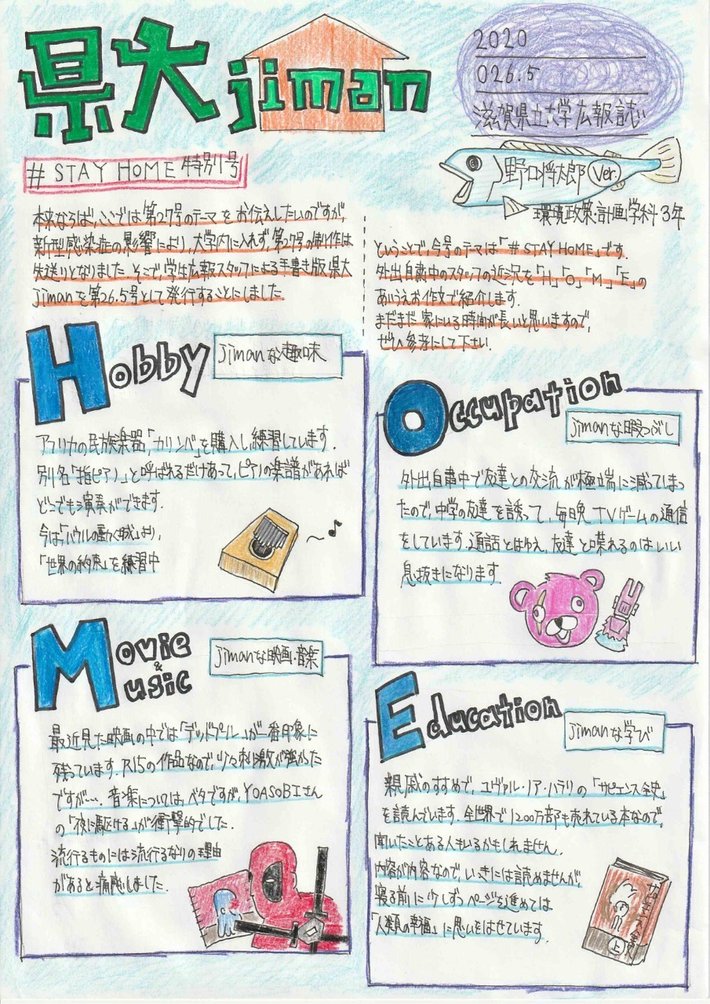 県大jiman
2020
026.5
滋賀県立大学広報誌
野口将太郎 Ver.
環境政策・計画学科3年
#STAY HOME 特別号
本来ならば、ここでは第27号のテーマをお伝えしたいのですが、
新型感染症の影響により、大学内に入れず、第27号の制作は
先送りとなりました。そこで学生広報スタッフによる手書き版県大
jimanを第26.5号として発行することにしました。
ということで今号のテーマは「#STAY HOME」です。
外出自粛中のスタッフの近況を「H」「O」「M」「E」の
あいうえお作文で紹介します。
まだまだ家にいる時間が長いと思いますので、
ぜひ参考にして下さい。
Hobby
jimanな趣味
アフリカの民族楽器、「カリンバ」を購入し練習しています。
別名「指ピアノ」と呼ばれるだけあって、ピアノの楽譜があれば
どこでも演奏ができます。
今は「ハウルの動く城」より、
「世界の約束」を練習中
Occupation
jimanな暇つぶし
外出自粛中で友達との交流が極端に減ってしまっ
たので、中学の友達を誘って、毎晩TVゲームの通信
をしています。通話とはゆえ、友達と喋れるのはいい
息抜きになります。
Movie & Music
jimanな映画・音楽
最近見た映画の中では「デッドプール」が一番印象に
残っています。R15の作品なので、少々刺激が強かった
ですが…。音楽については、ベタですが、YOASOBIさん
の「夜に駆ける」が衝撃的でした。
流行るものには流行るなりの理由
があると痛感しました。
Education
jimanな学び
親戚のすすめで、ユヴァル・ノア・ハラリの「サピエンス全史」
を読んでいます。全世界で1200万部も売れている本なので、
聞いたことある人もいるかもしれません。
内容が内容なので、いっきには読めませんが、
寝る前に少しずつページを進めては
「人類の幸福」に思いをはせています。
サピエンス全史
上